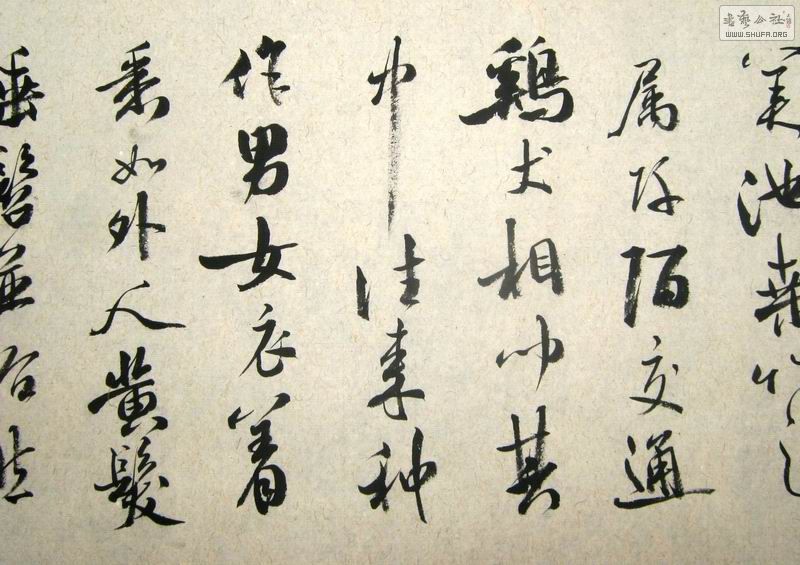 美池桑竹之
属阡陌交通
鸡犬相闻其
中往来种
作男女衣着
悉如外人黄髪
垂髫並怡然
书艺公社
WWW.SHUFA.ORG